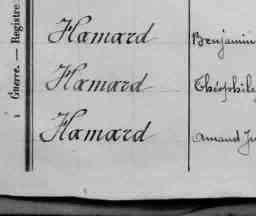 Guerre. — Registre
Hamard Benjamin
Hamard Théophile
Hamard Amand